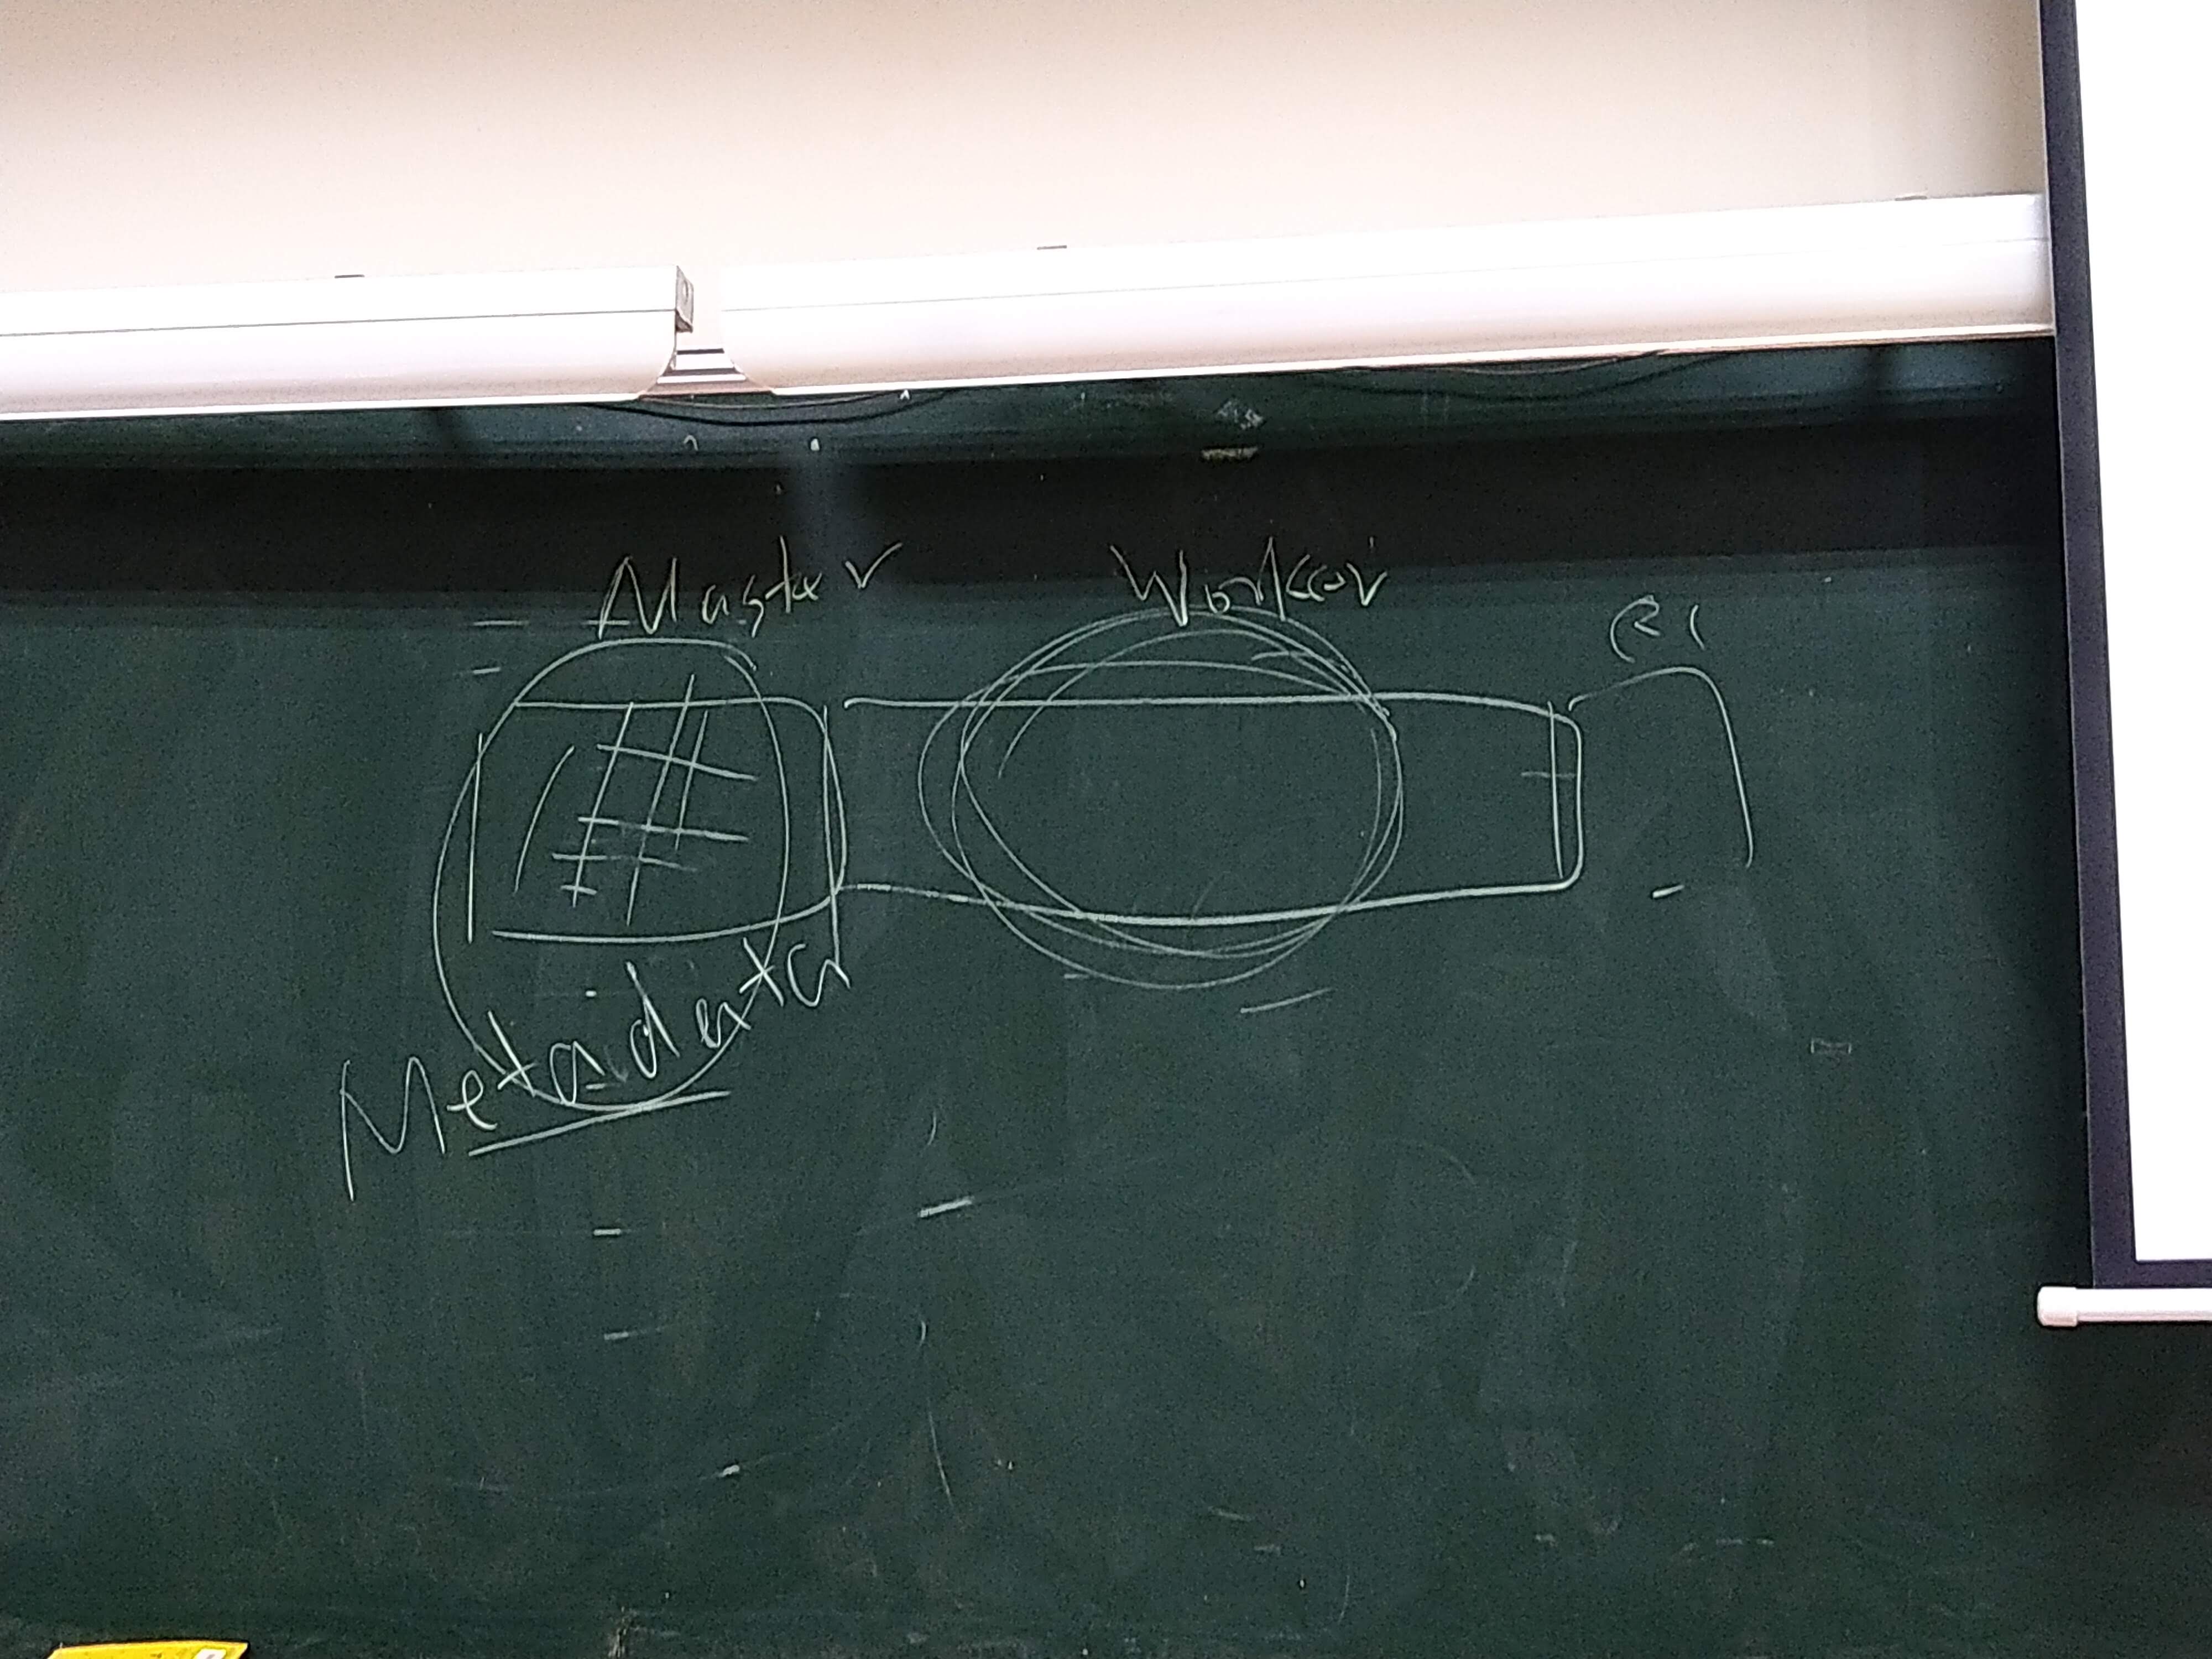 Master
Worker
Metadata